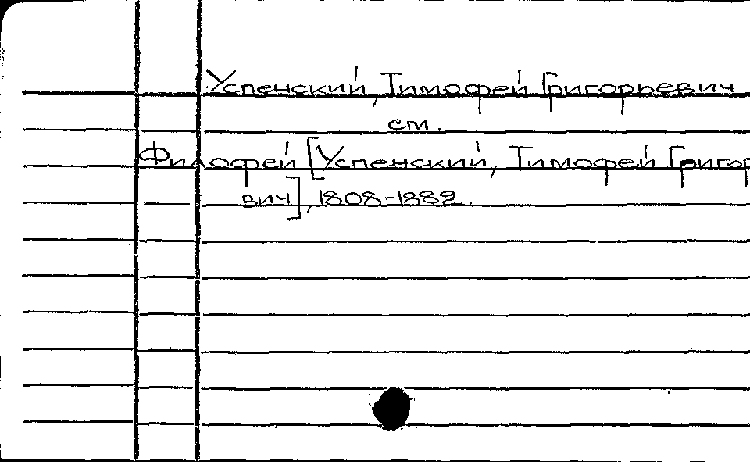 Успенский, Тимофей Григорьевич
см.
Филофей [Успенский, Тимофей Григор
вич], 1808-1882.